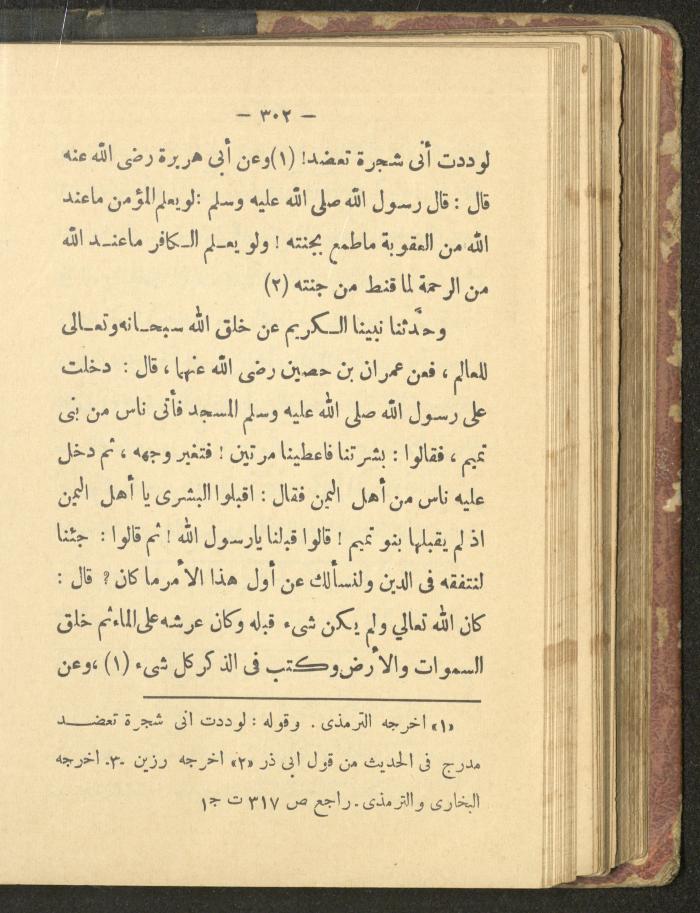 — ٣٠٢ —
لوددت أنى شجرة تعضد! (١) وعن أبى هريرة رضى الله عنه
قال : قال رسول الله صلى الله عليه وسلم :لو يعلم المؤمن ماعند
الله من العقوبة ماطمع بجنته ! ولو يعـلم الـكافر ماعنـد الله
من الرحمة لما قنط من جنته (٢)
وحدَّثنا نبينا الـكريم عن خلق الله سبحـانه وتعـالى
للعالم ، فعن عمران بن حصين رضى الله عنهما ، قال : دخلت
على رسول الله صلى الله عليه وسلم المسجد فأتى ناس من بنى
تميم ، فقالوا : بشرتنا فاعطينا مرتين ! فتغير وجهه ، ثم دخل
عليه ناس من أهل اليمن فقال : اقبلوا البشرى يا أهل اليمن
اذ لم يقبلها بنو تميم ! قالوا قبلنا يارسول الله ! ثم قالوا : جئنا
لنتفقه فى الدين ولنسألك عن أول هذا الأمر ما كان ؟ قال :
كان الله تعالي ولم يكن شىء قبله وكان عرشه على الماء ثم خلق
السموات والأرض وكتب فى الذكر كل شىء (١) ،وعن
«١» اخرجه الترمذى . وقوله : لوددت انى شجرة تعضـد
مدرج فى الحديث من قول ابى ذر «٢» اخرجه رزين -٣- اخرجه
البخارى والترمذى . راجع ص ٣١٧ ت ج١